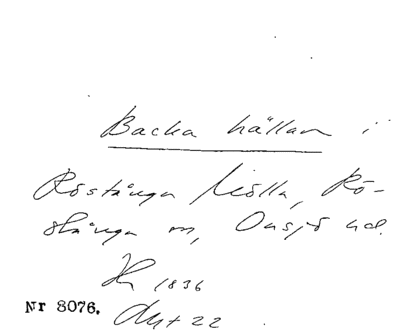 Backa hällan i
Röstånga Liölla, Rö-
stånga sn, Onsjö hd.
1836
Nr 8076.
22